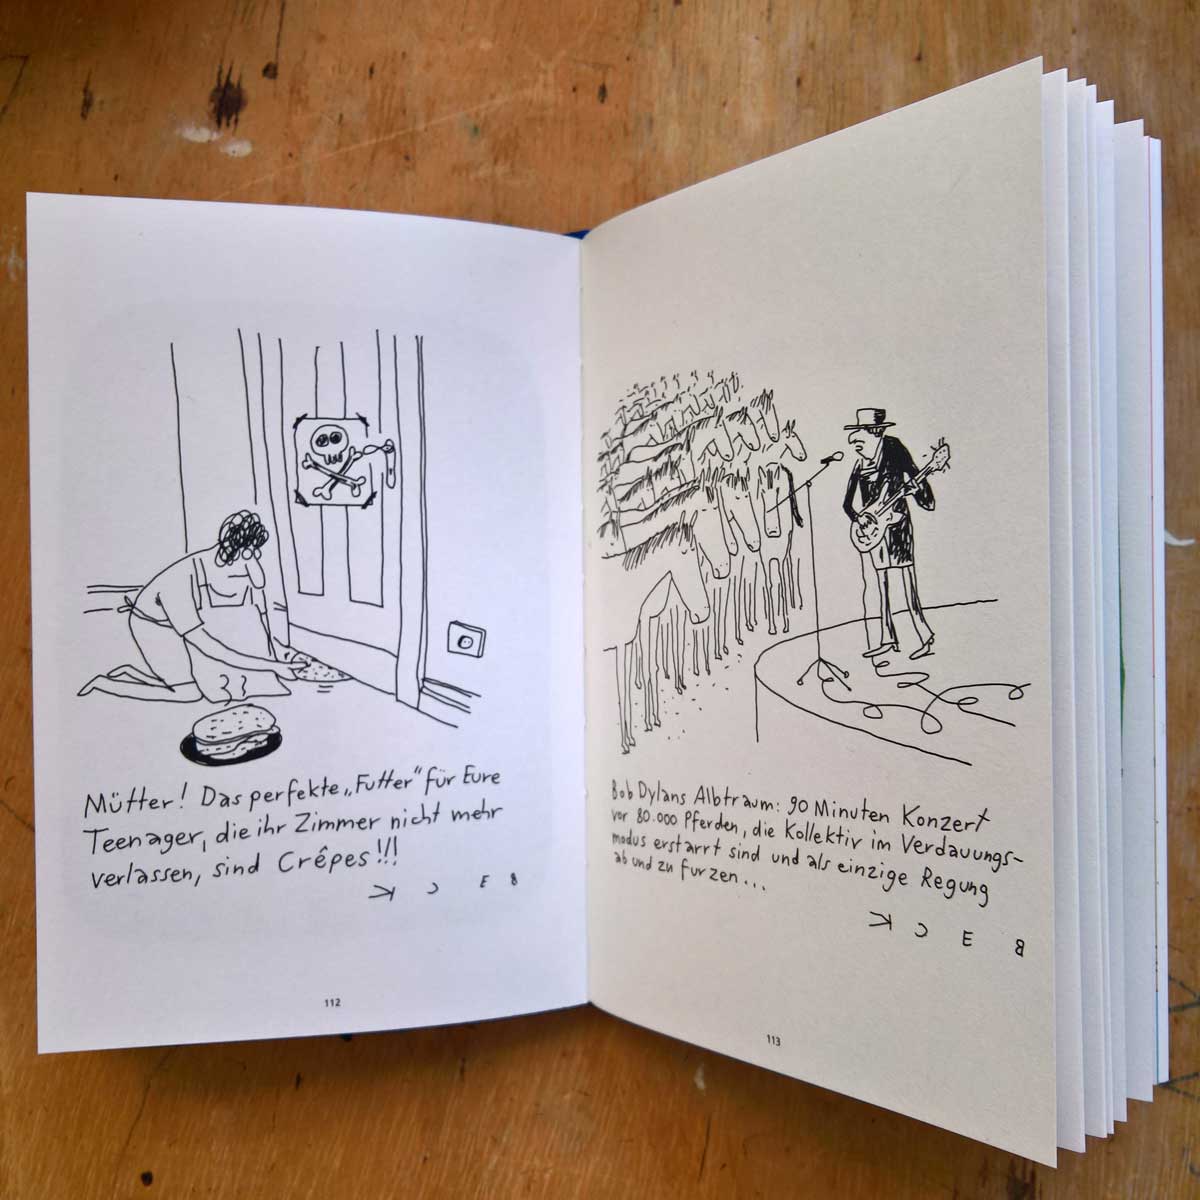 Mütter! Das perfekte „Futter“ für Eure
Teenager, die ihr Zimmer nicht mehr
verlassen, sind Crêpes!!!
BECK
112
Bob Dylans Albtraum: 90 Minuten Konzert
vor 80.000 Pferden, die Kollektiv im Verdauungs-
modus erstarrt sind und als einzige Regung
ab und zu furzen...
BECK
113